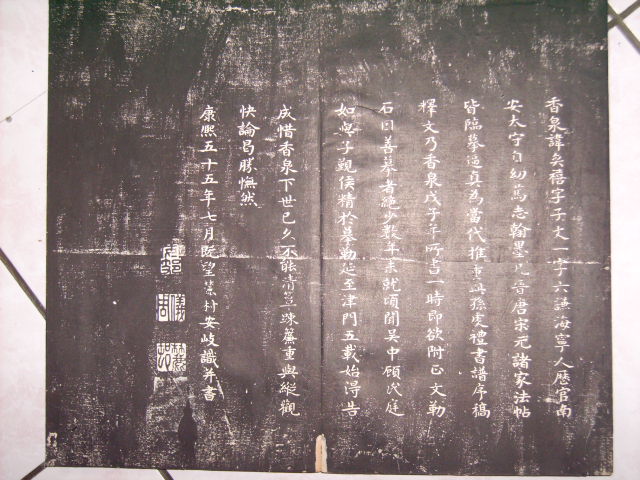 香泉諱奕禧字子文一字六謙海寧人歷官南
安太守自幼篤志翰墨凡晉唐宋元諸家法帖
皆臨摹逼真為當代推重此孫虔禮書譜序稿
釋文乃香泉戊子年所書一時即欲附正文勒
石因善摹者絕少數年未就頃聞吳中顧氏庭
如嶼子觀侯精於摹勒延至津門五載始得告
成惜香泉下世已久不能清簟疎簾重與縱觀
快論曷勝憮然
康熙五十五年七月既望麓村安岐識并書